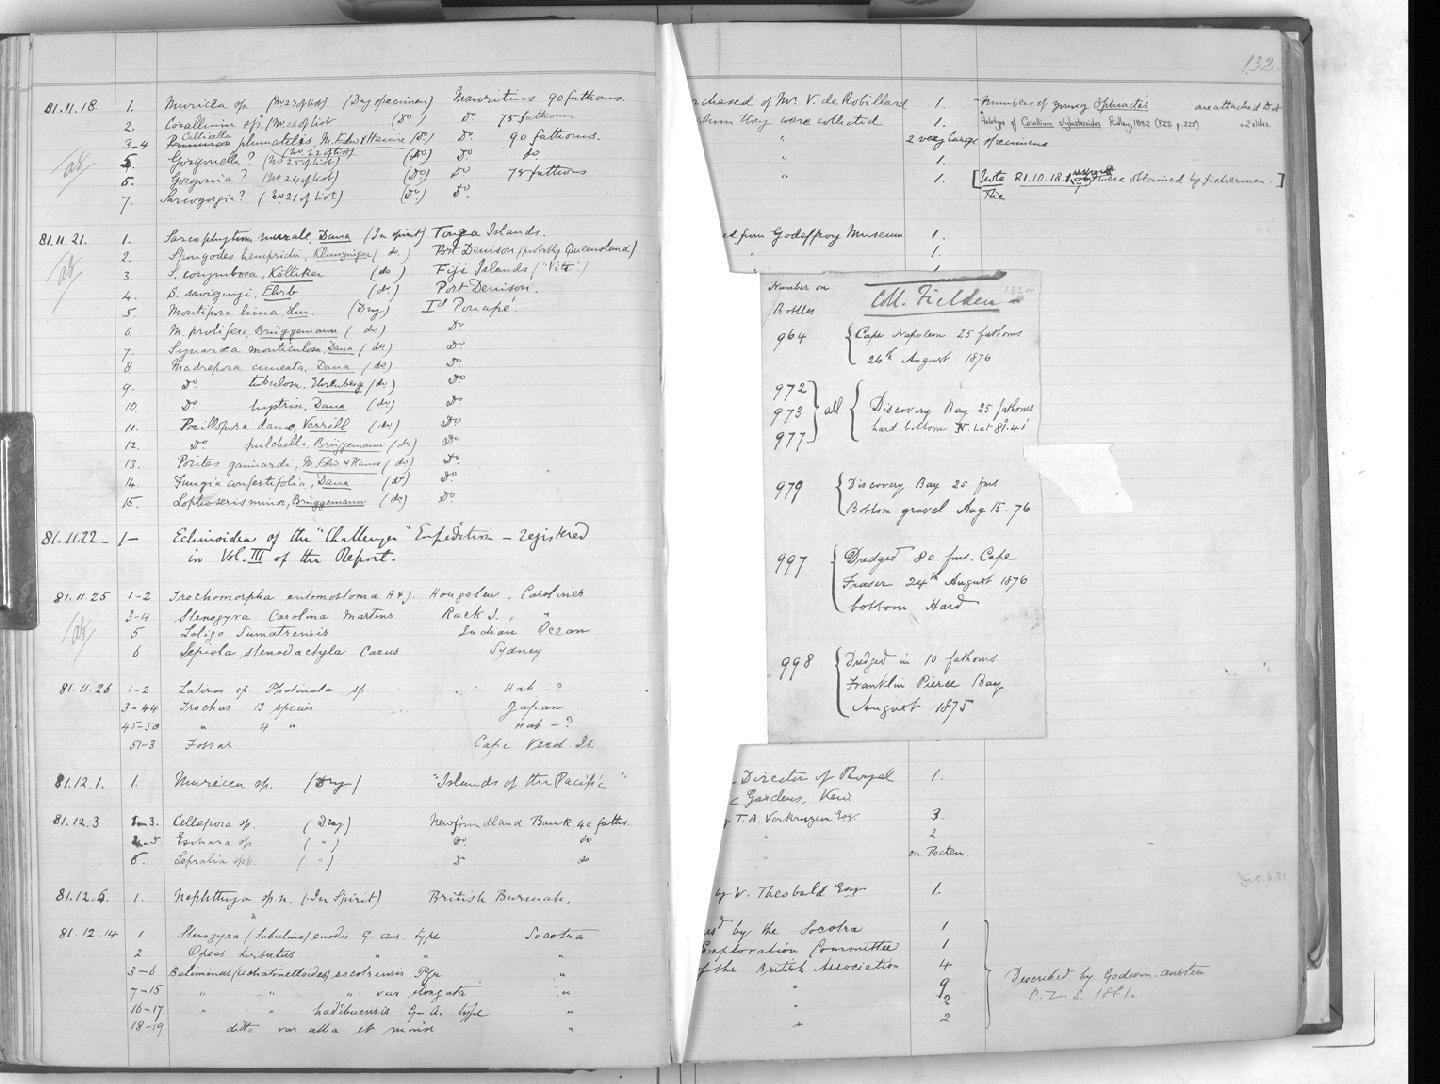 132.
81.11.18. 1. Muricea sp. (No 23 of List) (Dry specimen) Mauritius 90 fathoms.
2. Corallium sp. (No 26 of List (Do) Do 75 fathoms
3-4 plumatilis M. Edw & Haime (Do) Do 90 fathoms.
5. Gorgonella? (No 22 of List) (Do) Do do
6. Gorgonia? (No 24 of List) (Do) Do 75 fathoms
7. Sarcogorgia? (No 21 of List) (Do) Do
81.11.21. 1. Sarcophytum murale, Dana (In spirit) Tonga Islands.
2. Spongodes hemprichi, Klunzinger (do) Port Denison (probably Queensland)
3. S. corymbosa, Kölliker (do) Fiji Islands ("Viti")
4. S. savignyi, Ehrb (do) Port Denison.
5 Montipora lima, Lm. (Dry) Id Ponapé.
6. M. prolifera, Brüggemann (do) Do
7. Synaraea monticulosa, Dana (do) Do
8 Madrepora cuneata, Dana (do) Do
9. Do tubulosa, Ehrenberg (do) Do
10. Do hystrix, Dana (do) Do
11. Pocillopora danae, Verrill (do) Do
12. Do pulchella, Brüggemann (do) Do
13. Porites gaimardi, M. Edw & Haime (do) Do
14. Fungia confertifolia, Dana (do) Do
15. Lophoseris minor, Brüggemann (do) Do
81.11.22- 1- Echinoidea of the "Challenger" Expedition - registered
in Vol. III of the Report.
81.11.25 1-2 Trochomorpha entomostoma H & J. Hougoleu, Carolines
3-4 Stenogyra Carolina Martens Ruck I., "
5 Loligo Sumatrensis Indian Ocean
6 Sepiola stenodactyla Carus Sydney
81.11.26 1-2 Latirus sp. Photinula sp. Hab - ?
3-44 Trochus 13 species Japan
45-50 " 4 " Hab - ?
51-3 Fossar Cape Verd Is.
81.12.1. 1. Muricea sp. (Dry) "Islands of the Pacific"
81.12.3 1-3. Cellepora sp. (Dry) Newfoundland Bank. 40 faths.
4-5 Eschara sp (") Do do
6. Lepralia sp. (") do do
81.12.6. 1. Nephthya sp. n. (In Spirit) British Burmah.
81.12.14 1 Stenogyra (Subulina) enodis G-Aus. type Socotra
2 Opeas hirsutus " " "
3-6 Buliminus (achatinelloides) socotrensis Pfr "
7-15 " " " var elongata "
16-17 " " hadibuensis G-A. type "
18-19 ditto var alba et minor "
rchased of Mr V. de Robillard 1. Numbers of young Ophiactis are attached to it
whom they were collected 1. Holotype of Corallium stylasteroides Ridley, 1882 (PZS p. 225) + 2 slides
" 2 very large specimens
" 1.
" 1. [Note 81.10.18.1 were obtained by fishermen.]
The
ed from Godeffroy Museum 1.
" 1.
1.
Number on
Bottles
Coll. Feilden
964 Cape Napoleon 25 fathoms
26th August 1876
972
973
977
all Discovery Bay 25 fathoms
hard bottom N. Lat 81°.41'
979 Discovery Bay 25 fms
Bottom gravel Aug 15. 76
997 Dredged 80 fms. Cape
Fraser 24th August 1876
bottom Hard
998 Dredged in 10 fathoms
Franklin Pierce Bay
August 1875
Director of Royal 1.
Gardens, Kew.
T. A. Verkruzen Esq. 3.
" 2
" on Pecten.
by W. Theobald Esq 1.
ed by the Socotra 1
Exploration Committee 1
of the British Association 4
" 9
2
" 2
Described by Godwin-Austen
P. Z. S. 1881.